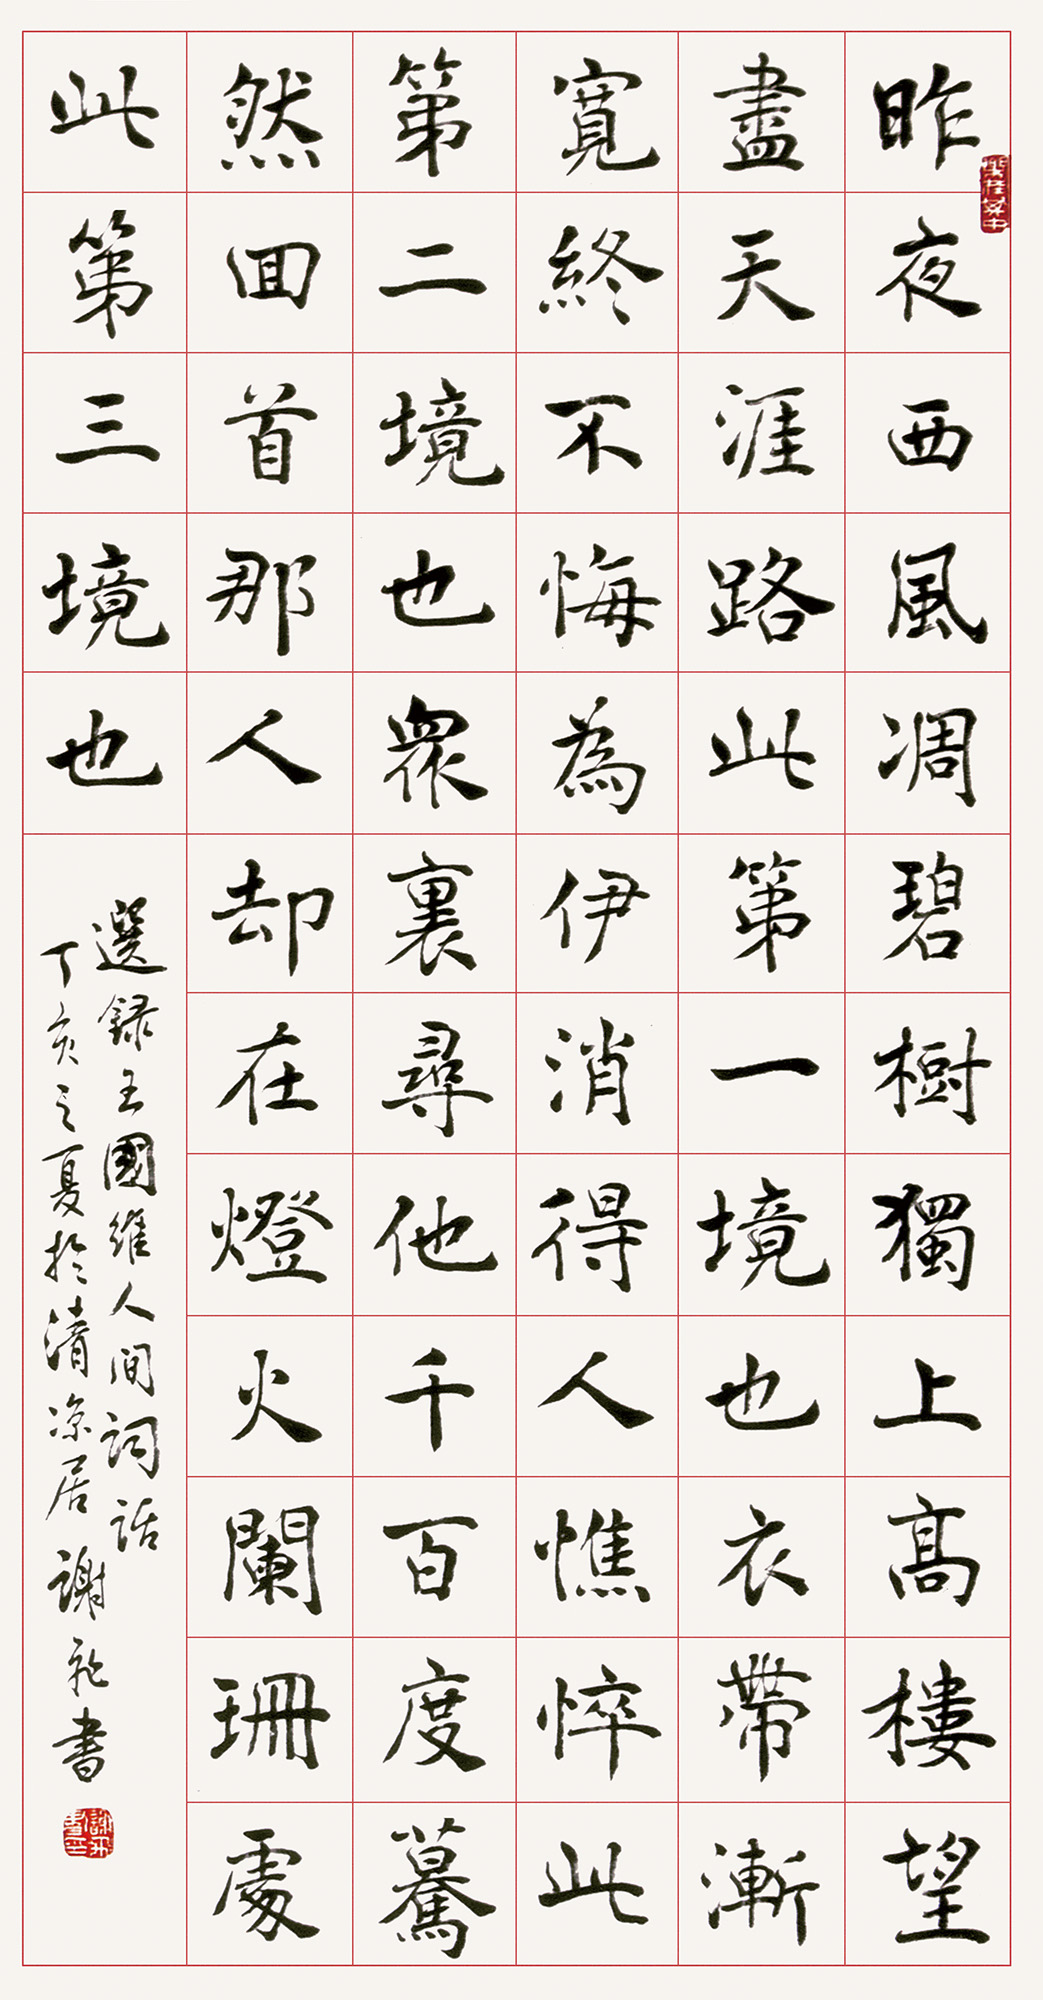 昨夜西風凋碧樹獨上高樓望
盡天涯路此第一境也衣帶漸
寬終不悔為伊消得人憔悴此
第二境也衆裏尋他千百度驀
然回首那人却在燈火闌珊處
此第三境也
選録王國維人間詞話
丁亥之夏於清涼居謝書